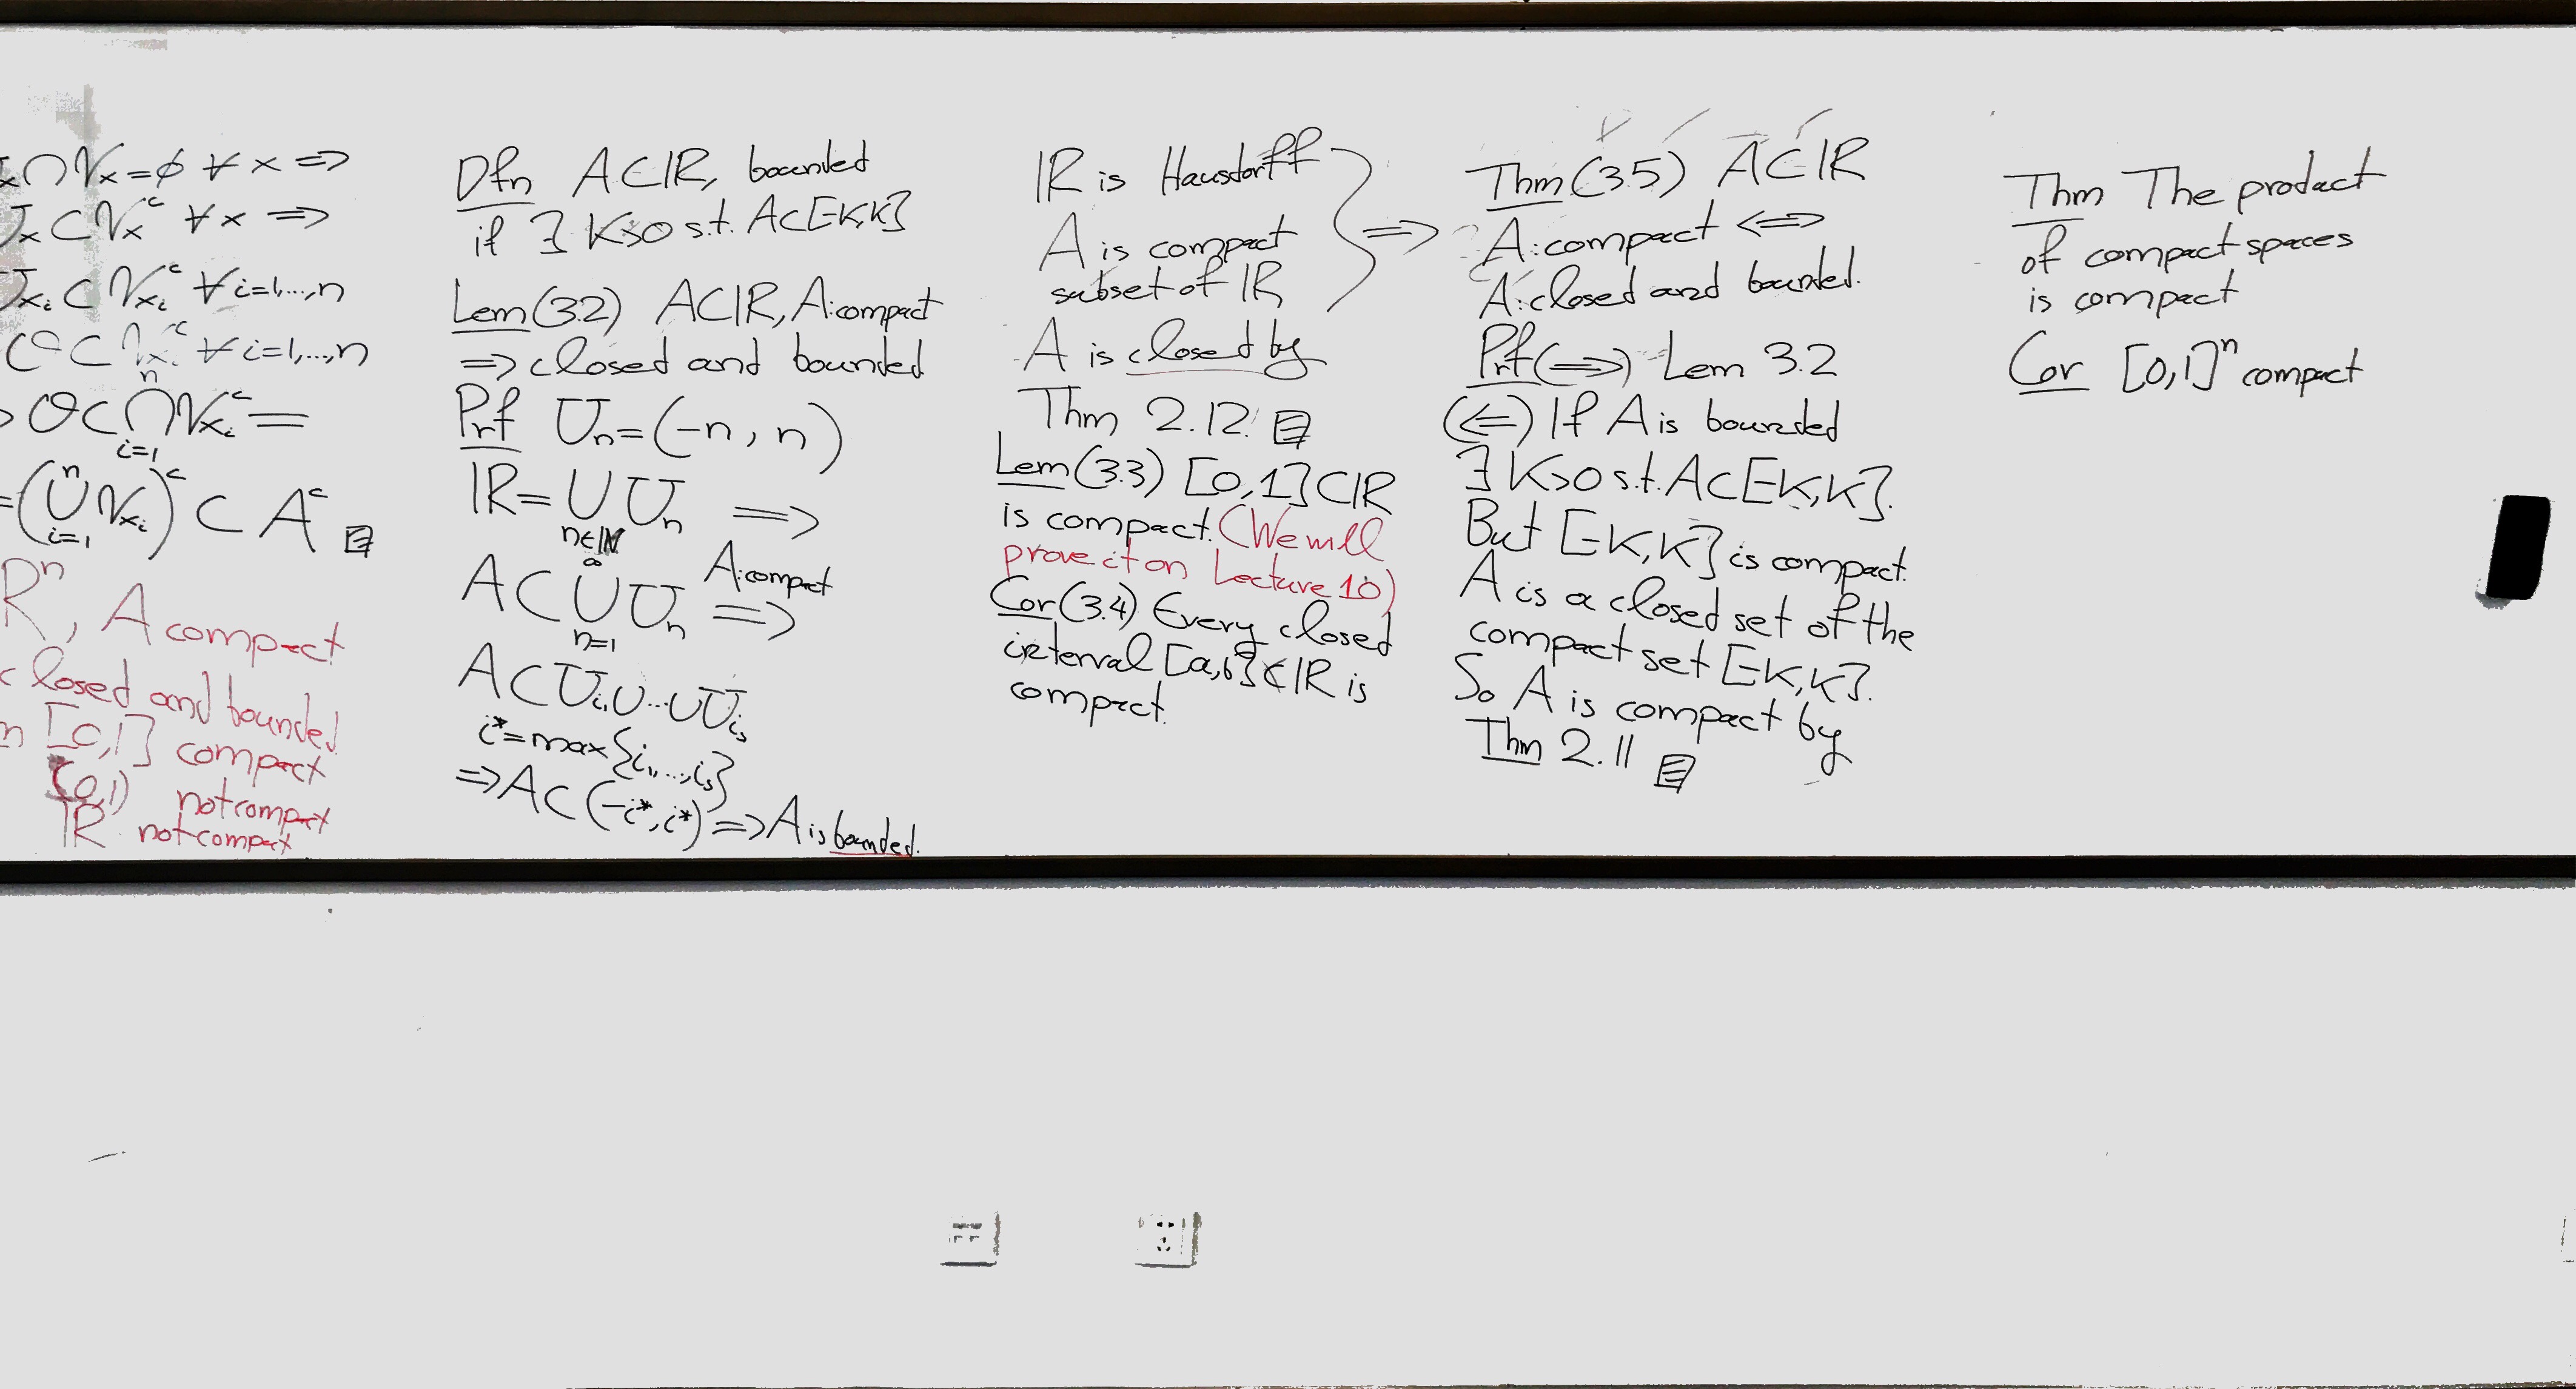 ∩ V_x = ∅ ∀ x ⇒
U_x ⊂ V_x^c ∀ x ⇒
U_{x_i} ⊂ V_{x_i}^c ∀ i=1,...,n
⊂ O ⊂ V_{x_i}^c ∀ i=1,...,n
O ⊂ ⋂_{i=1}^n V_{x_i}^c =
= (⋃_{i=1}^n V_{x_i})^c ⊂ A^c
R^n, A compact
closed and bounded
[0,1] compact
(0,1) not compact
ℝ not compact
Dfn A⊂ℝ, bounded
if ∃ K>0 s.t. A⊂[-K,K]
Lem(3.2) A⊂ℝ, A:compact
⇒ closed and bounded
Prf U_n=(-n, n)
ℝ = ⋃_{n∈ℕ} U_n ⇒
A ⊂ ⋃_{n=1}^∞ U_n ⇒ A:compact
A ⊂ U_{i_1} ∪...∪ U_{i_s}
i*=max{i_1,...,i_s}
⇒ A⊂(-i*, i*) ⇒ A is bounded.
ℝ is Hausdorff
A is compact
subset of ℝ
⇒
A is closed by
Thm 2.12.
Lem(3.3) [0,1]⊂ℝ
is compact. (We will
prove it on Lecture 10)
Cor(3.4) Every closed
interval [a,b]⊂ℝ is
compact.
Thm(3.5) A⊂ℝ
A:compact ⇔
A:closed and bounded.
Prf (⇒) Lem 3.2
(⇐) If A is bounded
∃ K>0 s.t. A⊂[-K,K].
But [-K,K] is compact.
A is a closed set of the
compact set [-K,K].
So A is compact by
Thm 2.11
Thm The product
of compact spaces
is compact
Cor [0,1]^n compact